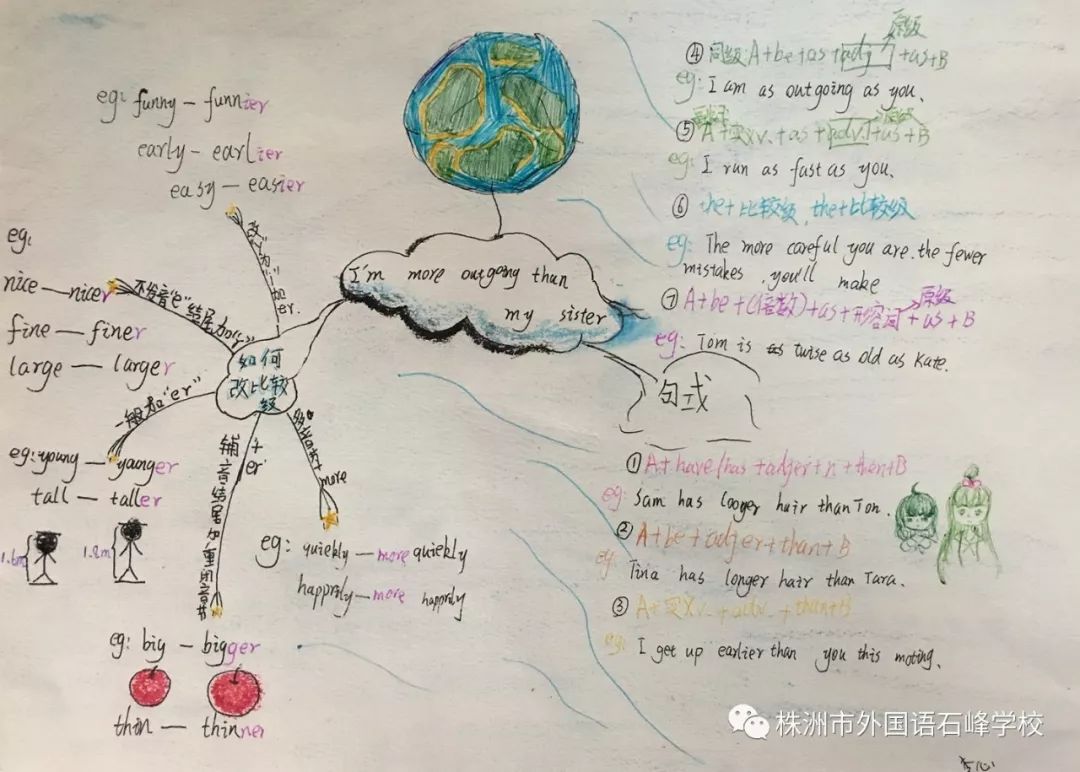 I'm more outgoing than
my sister
如何
改比较
级
eg: funny — funnier
early — earlier
easy — easier
改"y"为"i"+er.
eg:
nice — nicer
fine — finer
large — larger
不发音"e"结尾加"r"
一般加"er"
eg: young — yaonger
tall — taller
1.6m
1.8m
辅音结尾加重闭音节
+er
eg: big — bigger
thin — thinner
more
eg: quickly — more quickly
happrily — more happrily
句式
① A+have/has+adjer+n+then+B
eg: Sam has looger hair than Ton.
② A+be+adjer+than+B
eg: Tina has longer hair than Tara.
③ A+实义v.+adv.+than+B
eg: I get up earlier than you this moting.
④ 同级: A+be+as+adj+as+B
原级
eg: I am as outgoing as you.
⑤ A+实义v.+as+adv.+as+B
eg: I run as fast as you.
⑥ the+比较级, the+比较级
eg: The more careful you are. the fewer
mistakes you'll make
⑦ A+be+(倍数)+as+形容词+as+B
原级
eg: Tom is twise as old as Kate.
株洲市外国语石峰学校